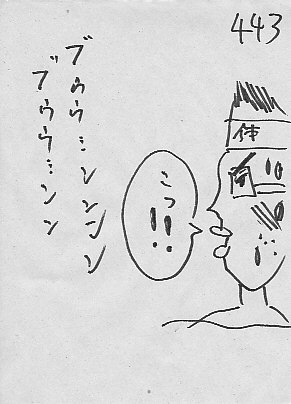 443
ブゥゥ…ンンンン
ブゥゥ…ンン
こっ!!
体